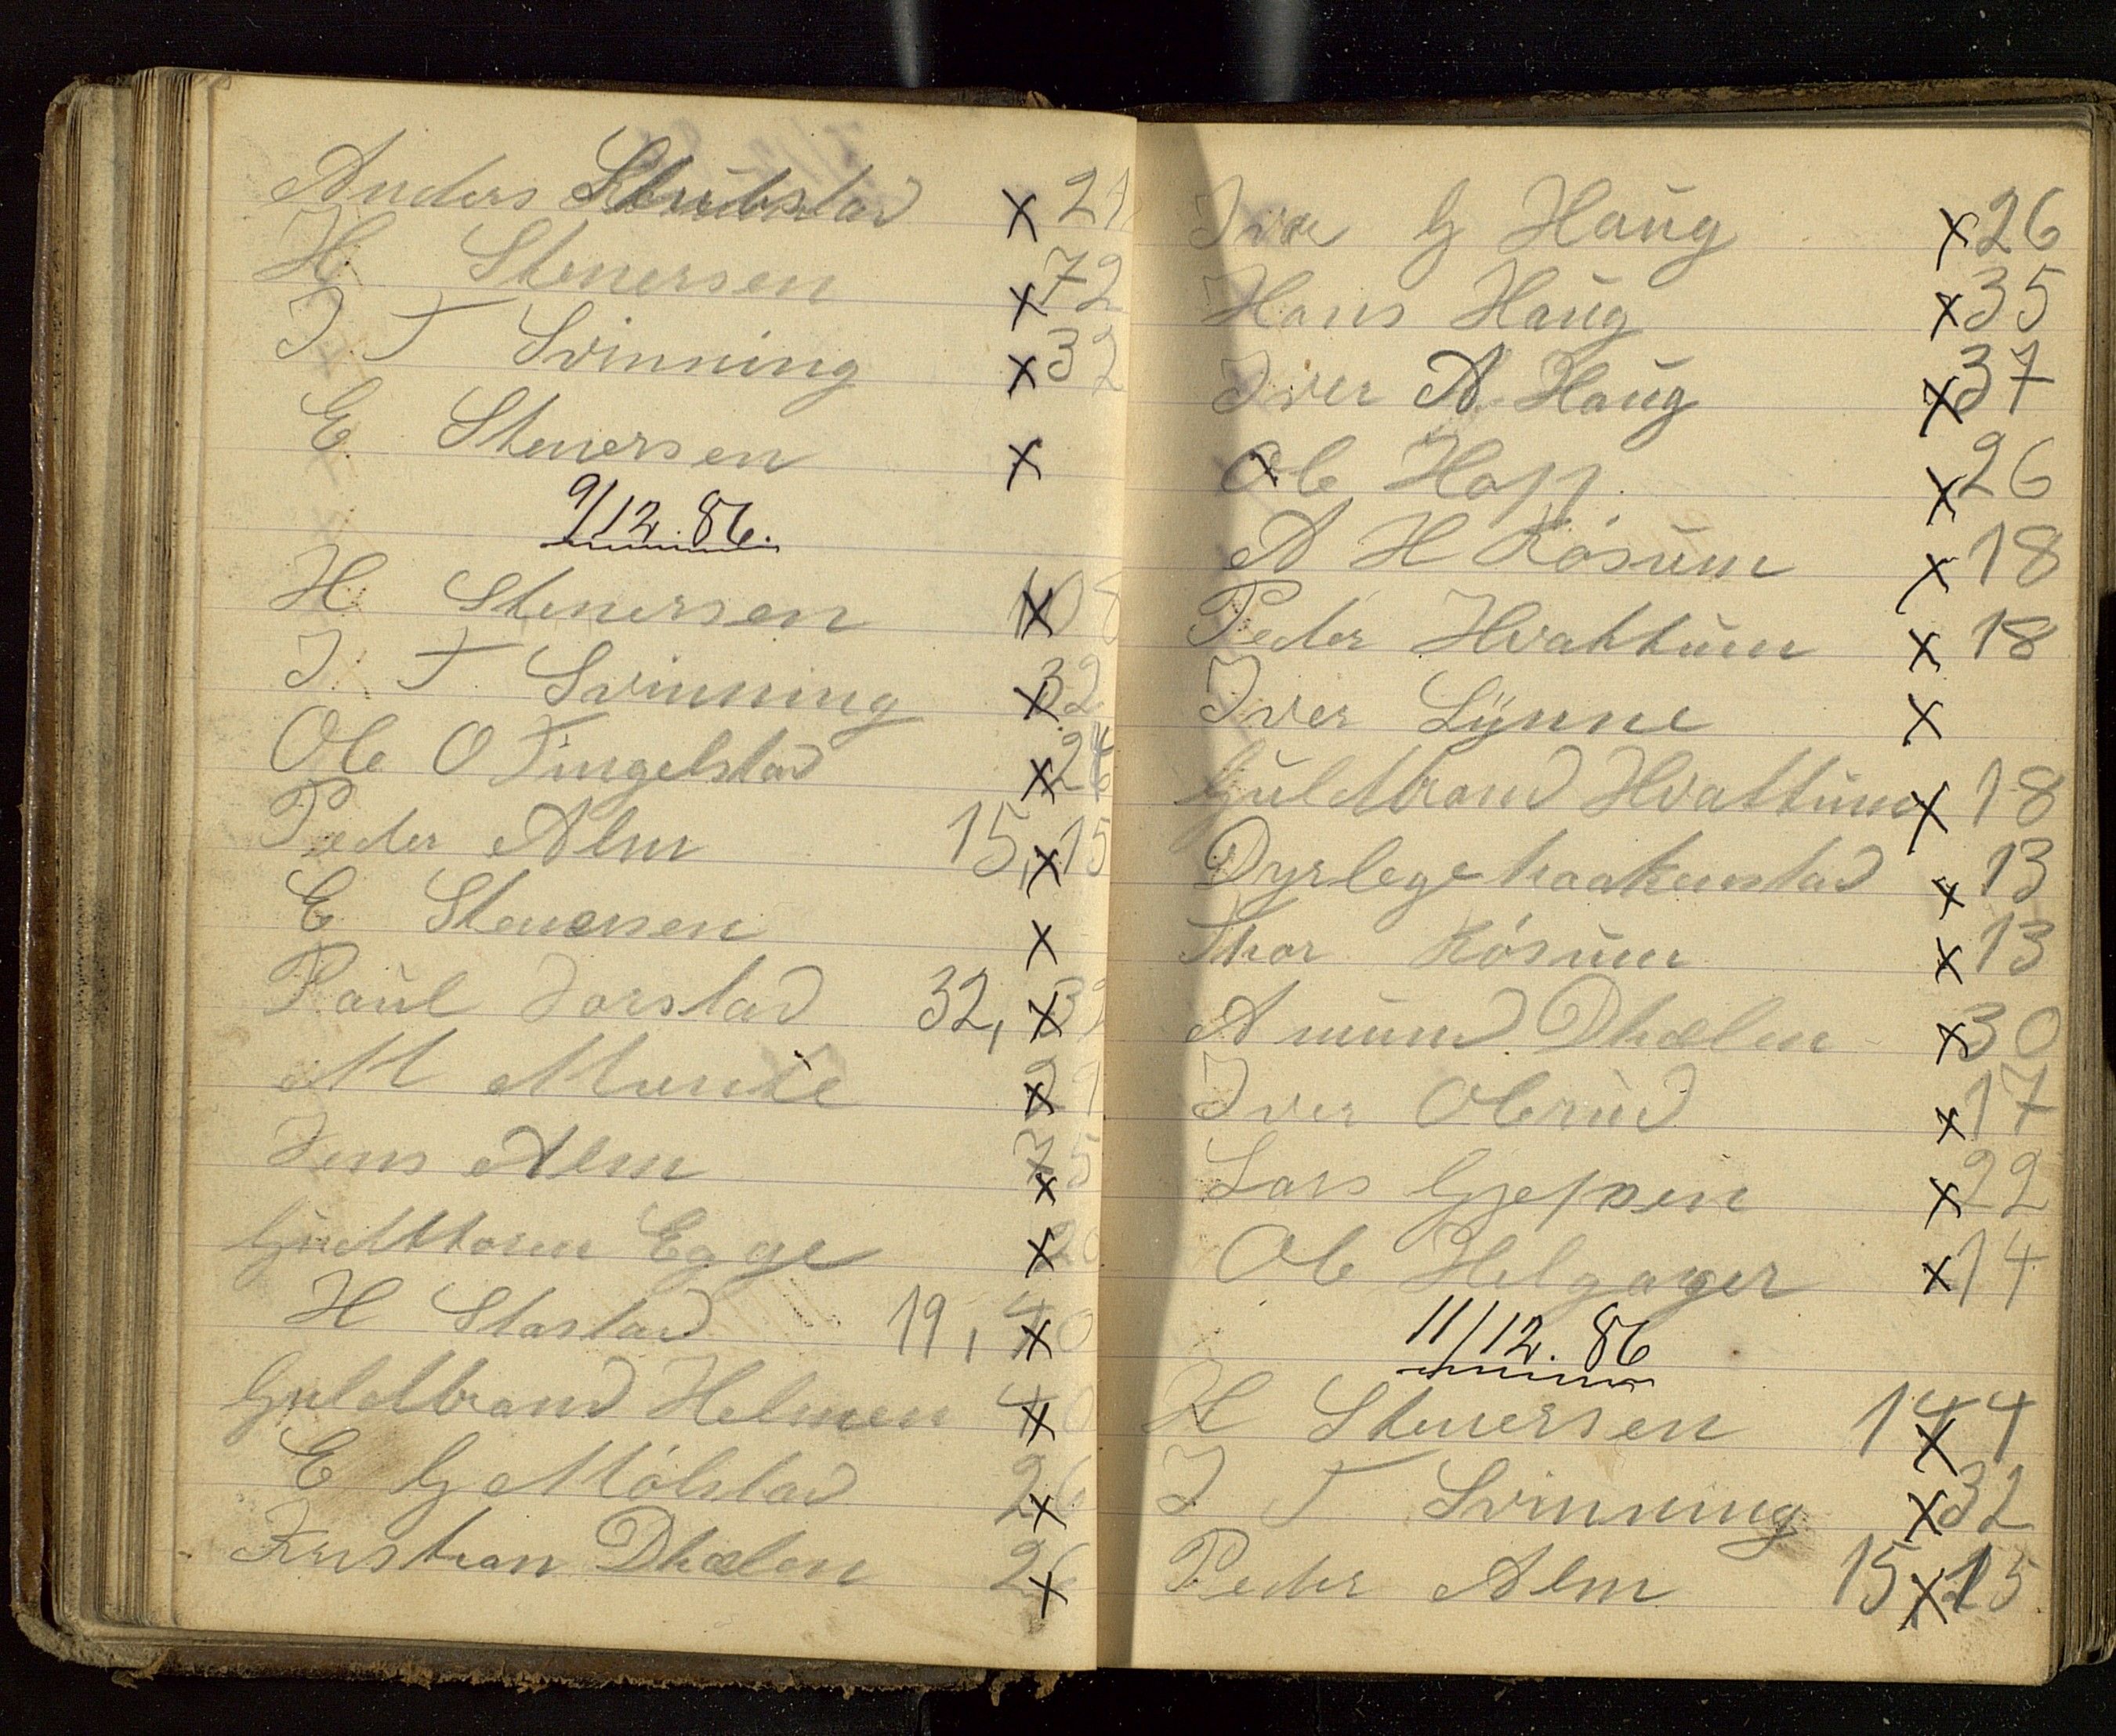 Anders Skrubstad x 21
H Stenersen x 72
I T Svinning x 32
E Stenersen x
9/12. 86.
H Stenersen x 108
I T Svinning x 32
Ole O Tingelstad x
Peder Alm 15, x 15
E Stenersen x
Paul Jorstad 32, x 32
M Munke x 29
Jens Alm x 35
Gudttorm Egge x 20
H Stastad 19, x 40
Guldbrand Helmen x 40
E G Mólstad x 26
Kristian Dhælen x 26
Iver G Haug x 26
Hans Haug x 35
Iver A Haug x 37
Ole Hopp x 26
A H Rósum x 18
Peder Hvattum x 18
Iver Lynne x
Guldbrand Hvattum x 18
Dyrlege haakenstad x 13
Thor Rósum x 13
Amund Dhælen x 30
Iver Olerud x 17
Lars Gjepsen x 22
Ole Helgager x 14
11/12. 86
H Stenersen x 144
I T Svinning x 32
Peder Alm 15 x 15